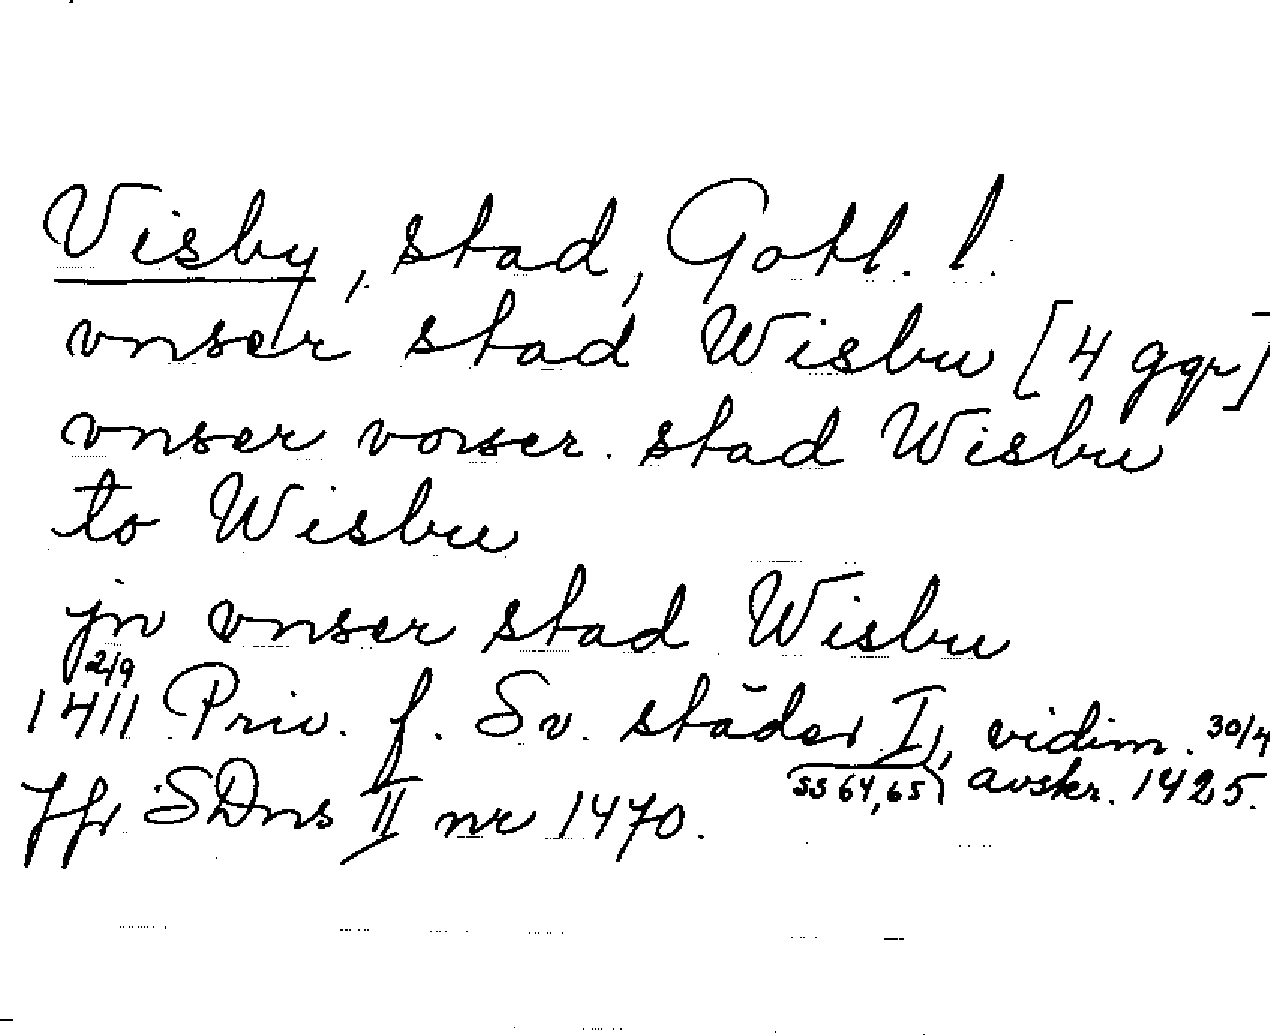 Visby, stad, Gotl. l.
vnser stad Wisbu [4 ggr]
vnser vorser. stad Wisbu
to Wisbu
jn vnser stad Wisbu
1411 2/9 Priv. f. Sv. städer I, vidim. 30/4
ss 64,65 avskr. 1425.
Jfr SDns II nr 1470.